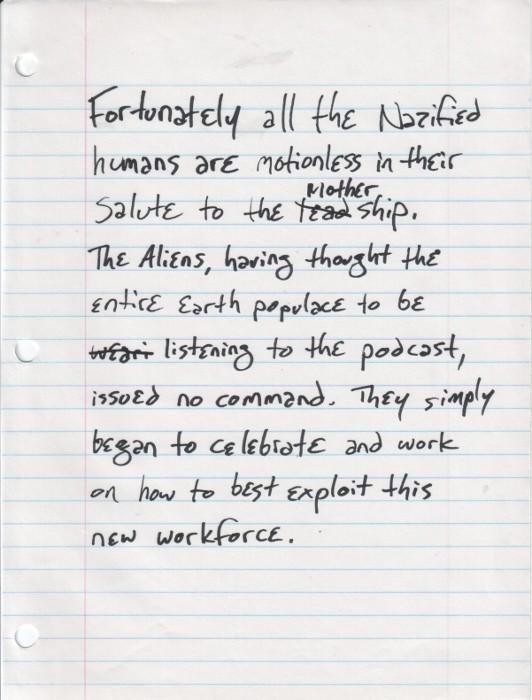 Fortunately all the Nazified
humans are motionless in their
Mother
Salute to the lead ship.
The Aliens, having thought the
entire Earth populace to be
listening to the podcast,
issued no command. They simply
began to celebrate and work
on how to best exploit this
new workforce.